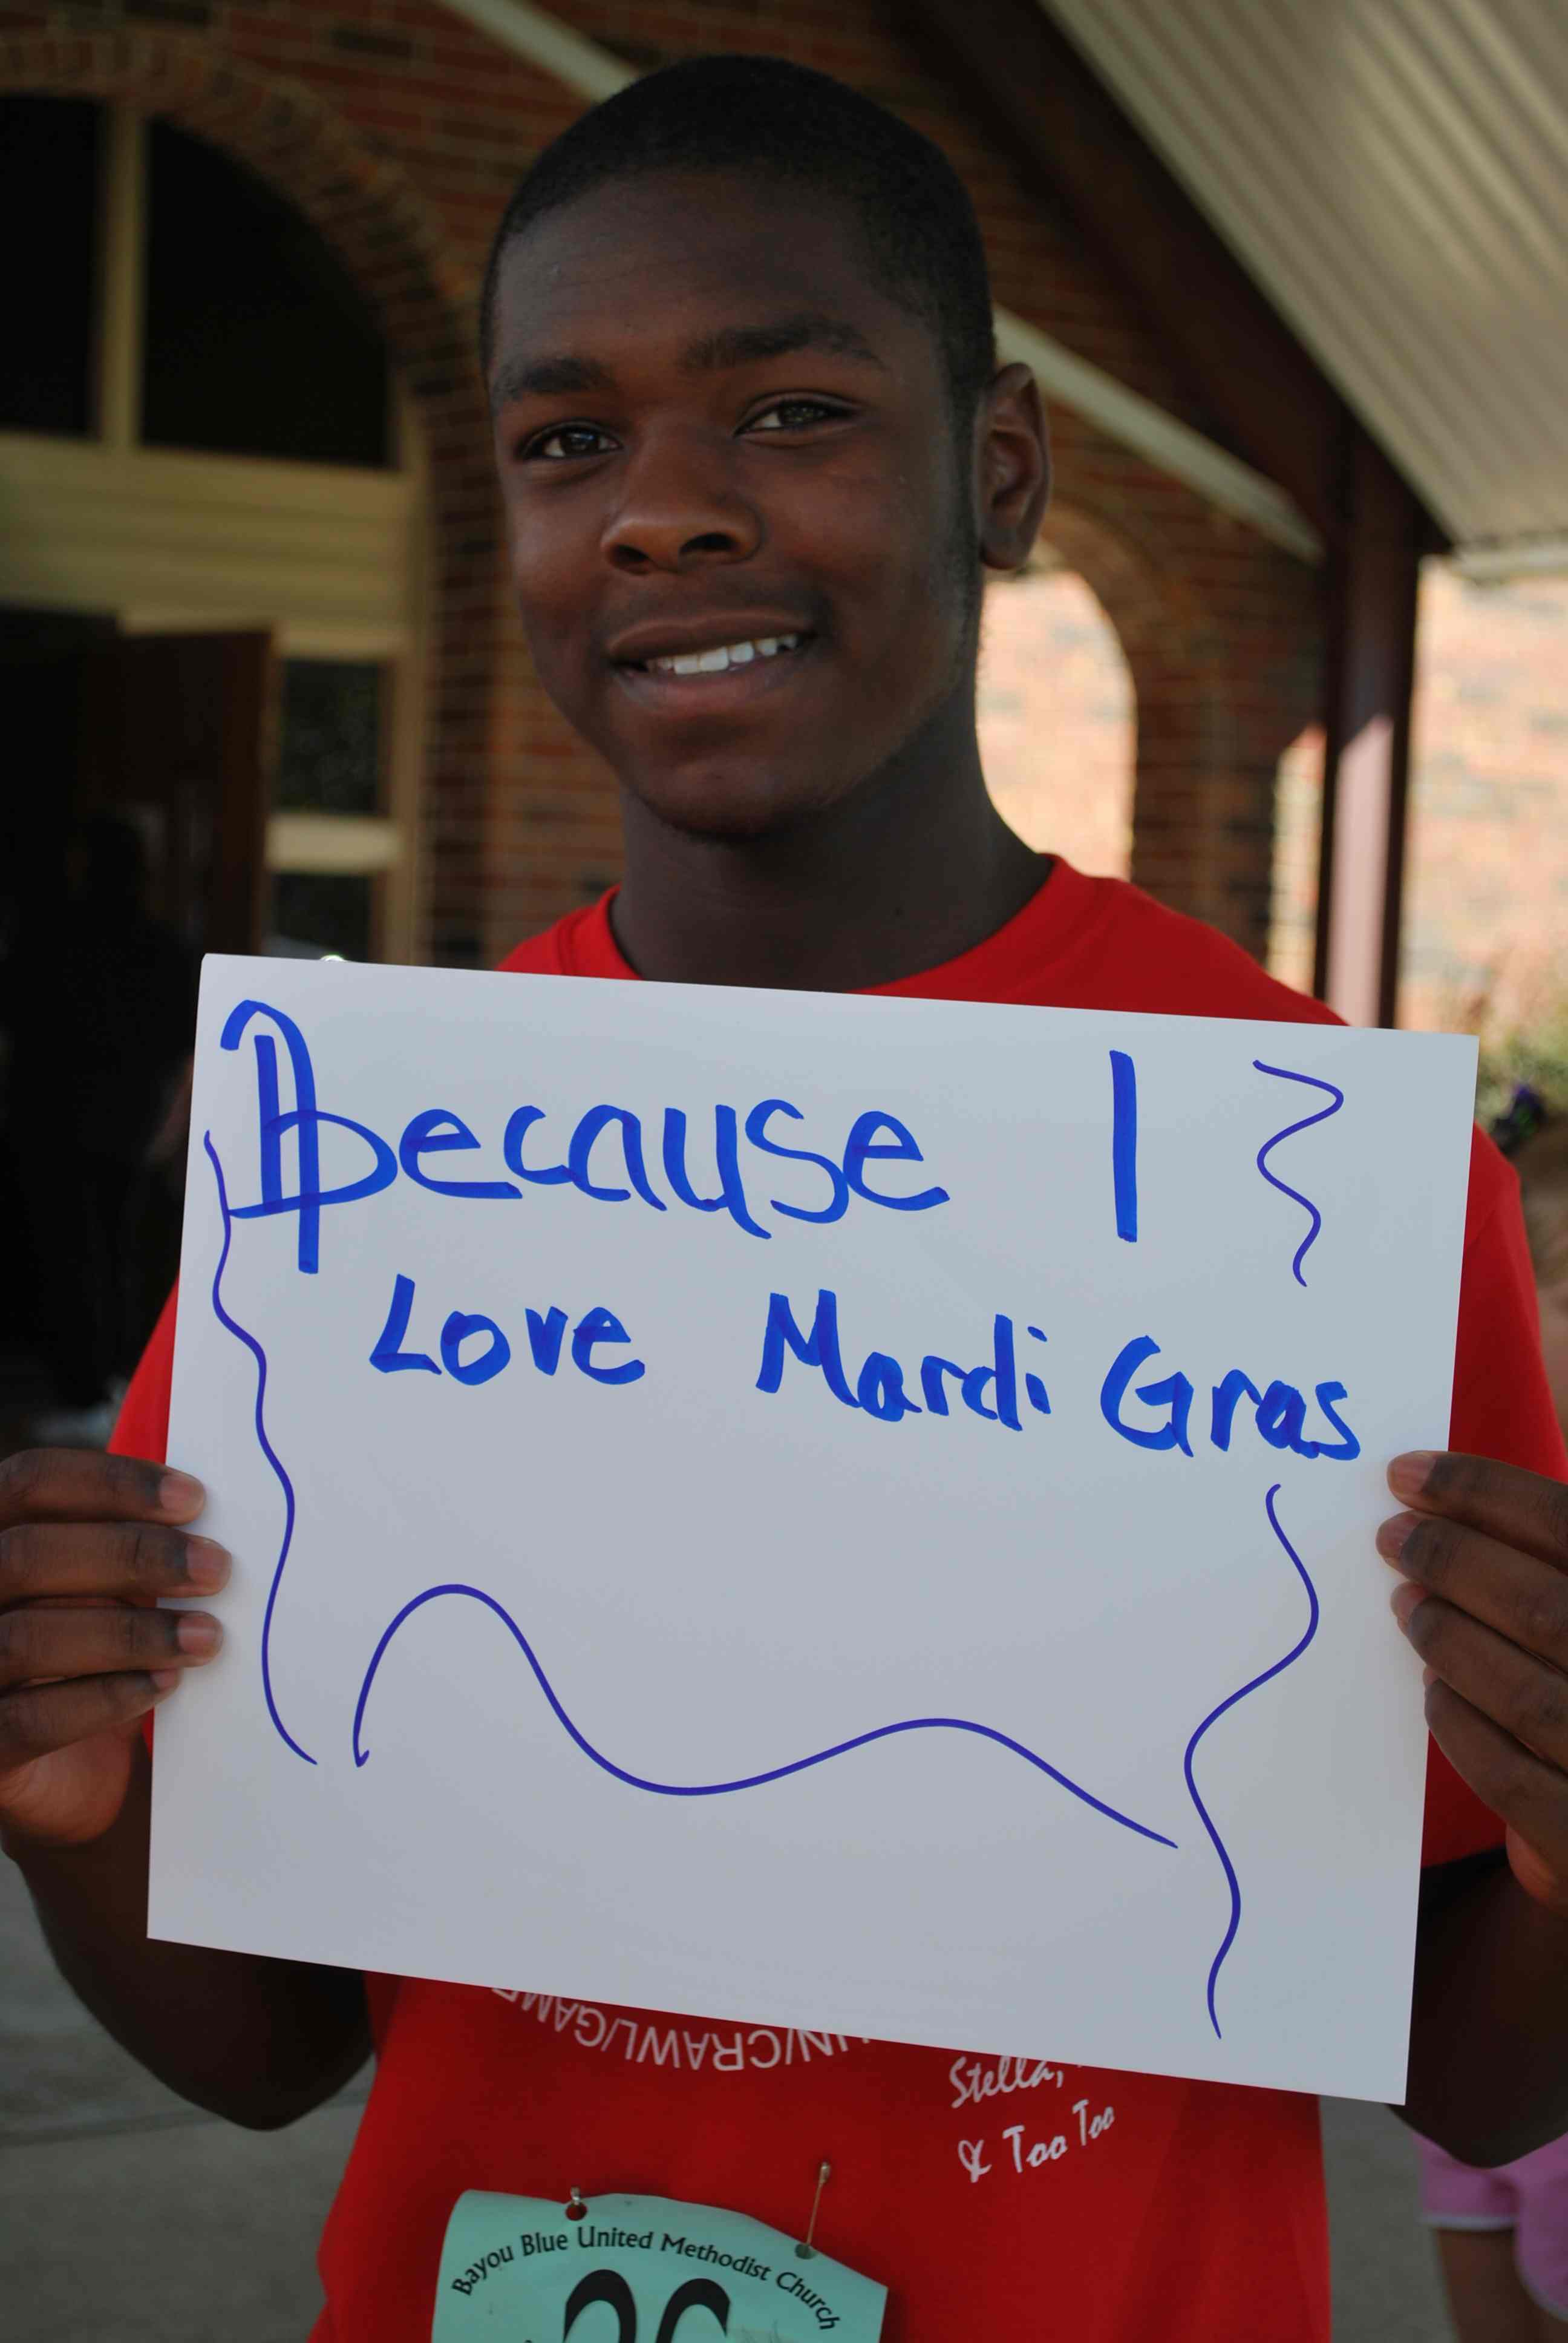 Because I
Love Mardi Gras
Stella,
& Too Too
Bayou Blue United Methodist Church